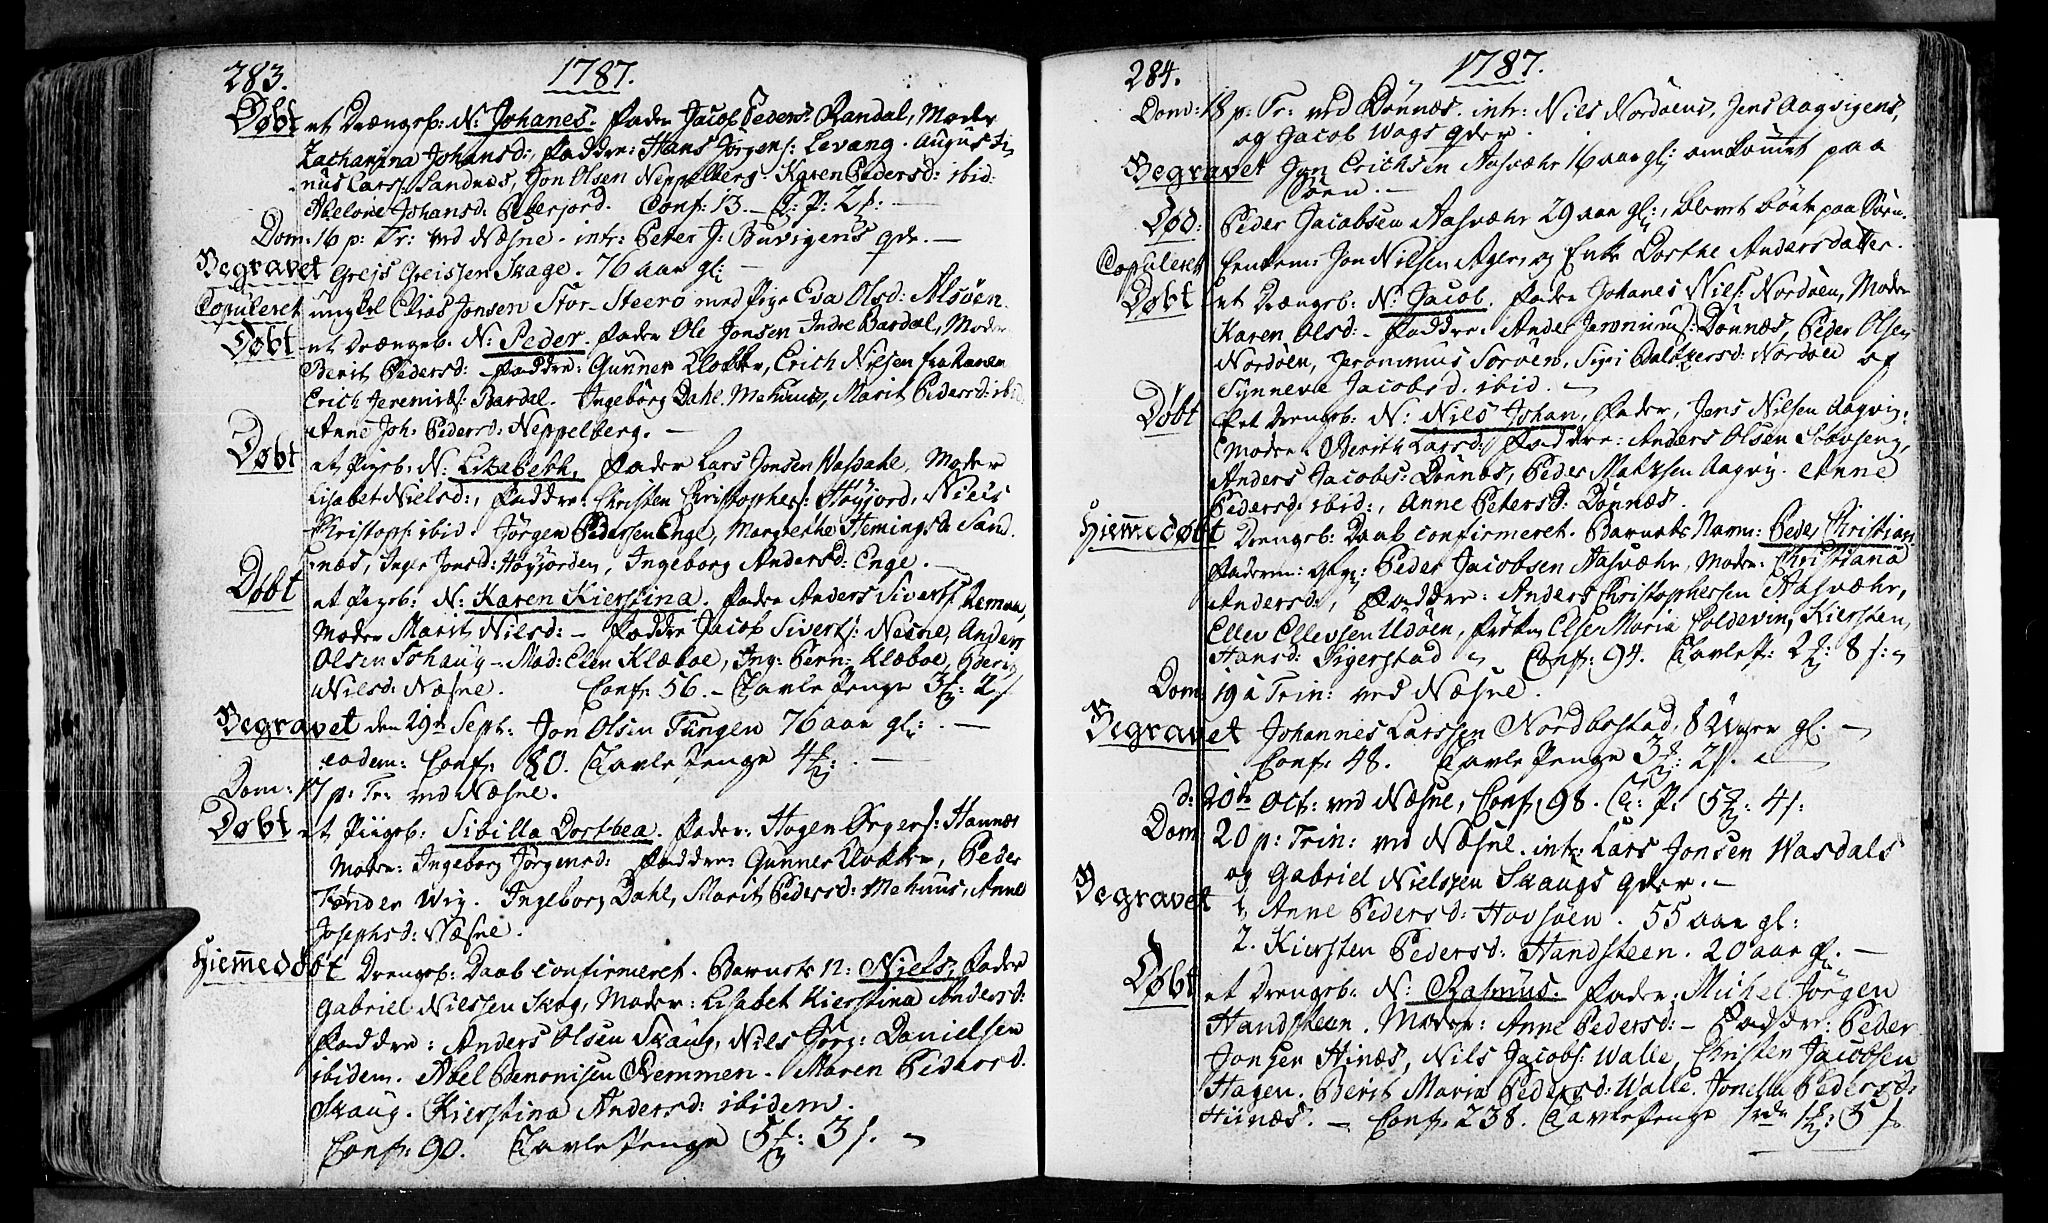 283. 1787.
Døbt et Drængb: N: Johanes. Fader Jacob Peders: Randal, Moder
Zacharina Johansd:, Faddre: Hans Jørgens: Levang. Augusti-
nus Lars: Sandnes, Jon Olsen Neppelberg Karen Pedersd: ibid:
Abelone Johansd: Conf: 13. – T: P: 2 s: –
Dom: 16 p: Tr: ved Næsne. intr: Peter J: Buvigens qde. –
Begravet Grejs Greissen Skage. 76 aar gl: –
Copuleret ungkl Elias Jonsen Stor-Steero med Pige Eva Olsd: Alsøen.
Døbt et Drængeb. N: Peder. Fader Ole Jonsen Indre Bardal, Moder
Berit Pedersd: Faddre: Gunner Klokker, Erich Nielsen fra Ranen
Erich Jeremiæs: Bardal. Ingeborg Dahl. Mehuus, Marit Pedersd: ibid.
Anne Joh: Pedersd: Neppelberg. –
Døbt et Pigeb: N: Lisebeth, Fader Lars Jonsen Vasdahl, Moder
Lisabet Nielsd:, Faddre: Christen Christophers: Høyjord, Niels
Christoph: ibid. Jørgen Pedersen Enge, Margrethe Hemingsd: Sand-
næs, Inger Jonsd: Høyjorden, Ingeborg Andersd: Enge. –
Døbt et Pigeb: N: Karen Kierstina. Fader Anders Siverts: Remmen,
Moder Marit Nilsd: – Faddre Jacob Siverts: Nesne, Anders
Olsen Tohaug – Mad: Elen Klæboe, Ing: Pern: Klæboe,
Nilsd: Næsne. Conf: 56. – Tavle Penge 3 ʒ: 2 s
Begravet den 29de Sept: Jon Olsen Fungen 76 aar gl: –
eodem: Conf: 80. Tavle Penge 4 ʒ: –
Dom: 17 p: Tr: ved Næsne.
Døbt et Piigeb: Sibilla Dorthea. Fader: Hagen Birgers: Hannæs
Moder: Ingeborg Jørgensd: Faddre: Gunner Klokker, Peder
Tønder Wig. Ingeborg Dahl, Marit Pedersd: Mehuus, Anne
Josephsd: Næsne.
Hiemmedøbt Drengeb: Daab confirmeret. Barnets N: Niels, Fader
Gabriel Nilssen Skog, Moder: Lisabet Kierstina Andersd:
Faddre: Anders Olsen Skaug, Nils Jörg: Danielsen
ibidem. Abel Benonisen Remmen. Maren Pedersd.
Skaug. Kierstina Andersd: ibidem.
Conf: 90. Tavle Penge 5 ʒ: 3 s.
284. 1787.
Dom: 18 p: Tr: ved Dönnæs. intr: Nils Nordøens, Jens Aagvigens,
og Jacob Wags qder.
Begravet Jon Erichsen Aasvæhr 16 aar gl: omkomet paa
Söen. –
Død: Peder Jacobsen Aasvæhr 29 aar gl:, blevet död paa Söen.
Copuleret Enkem: Jon Nilsen Ager, og Enke Dorthe Andersdatter.
Døbt et Drængeb: N: Jacob. Fader Johanes Niels: Nordøen, Moder
Karen Olsd: – Faddre: Anders Jeronimus: Dönnæs, Peder Olsen
Nordøen, Jeronimus Sorvöen, Siri Baltzersd: Nordøen og
Synneve Jacobsd. ibid. –
Døbt Et Drengeb: N: Nils Johan, Fader, Jens Nilsen Aagvig:
Moder Berith Larsd: Faddre: Anders Olsen Stavseng,
Anders Jacobs: Dönnæs, Peder Mathsen Aagvig. Anne
Pedersd: ibid:, Anne Petersd: Dönnæs.
Hiemmedøbt Drengeb: Daab confirmeret. Barnets Navn: Peder Christian
Faderen: Peder Jacobsen Aasvæhr, Moder: Christiana
Andersd:, Faddre: Anders Christophersen Aasvæhr,
Ellev Ellevsen Udöen, Else Maria Coldevin, Kiersten
Hansd: Sigerstad Conf: 94. Tavlep: 2 ʒ 8 s:
Dom 19 à Trin: ved Næsne.
Begravet Johannes Larssen Nordbostad, 8 Uger gl. –
Conf: 48. Tavle Penge 3 ʒ: 2 s.
d: 20de Oct: ved Næsne, Conf: 98. T: P: 5 ʒ: 4 s:
Dom 20 p: Trin: ved Næsne. intr: Lars Jonsen Wasdals
og Gabriel Nielssen Skaugs qder. –
Begravet 1, Anne Pedersd: Hovsöen. 55 aar gl:
2. Kiersten Pedersd: Handsteen. 20 aar gl. –
Døbt et Drengeb: N: Rasmus. Fader: Michel Jörgen
Handsteen. Moder: Anne Pedersd: – Faddre: Peder
Jonsen Hinæs, Nils Jacobs: Walle, Christen Jacobsen
Hagen. Berit Maria Pedersd: Walle. Jonetta Pedersd:
Hiinæs. – Conf: 238. Tavle Penge 1rd 1 ʒ: 5 s